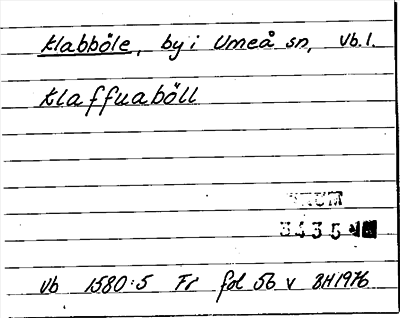 Klabböle, by i Umeå sn, Vb.l.
Klaffuaböll
3435
Vb 1580:5 Fr fol 56 v BH1976